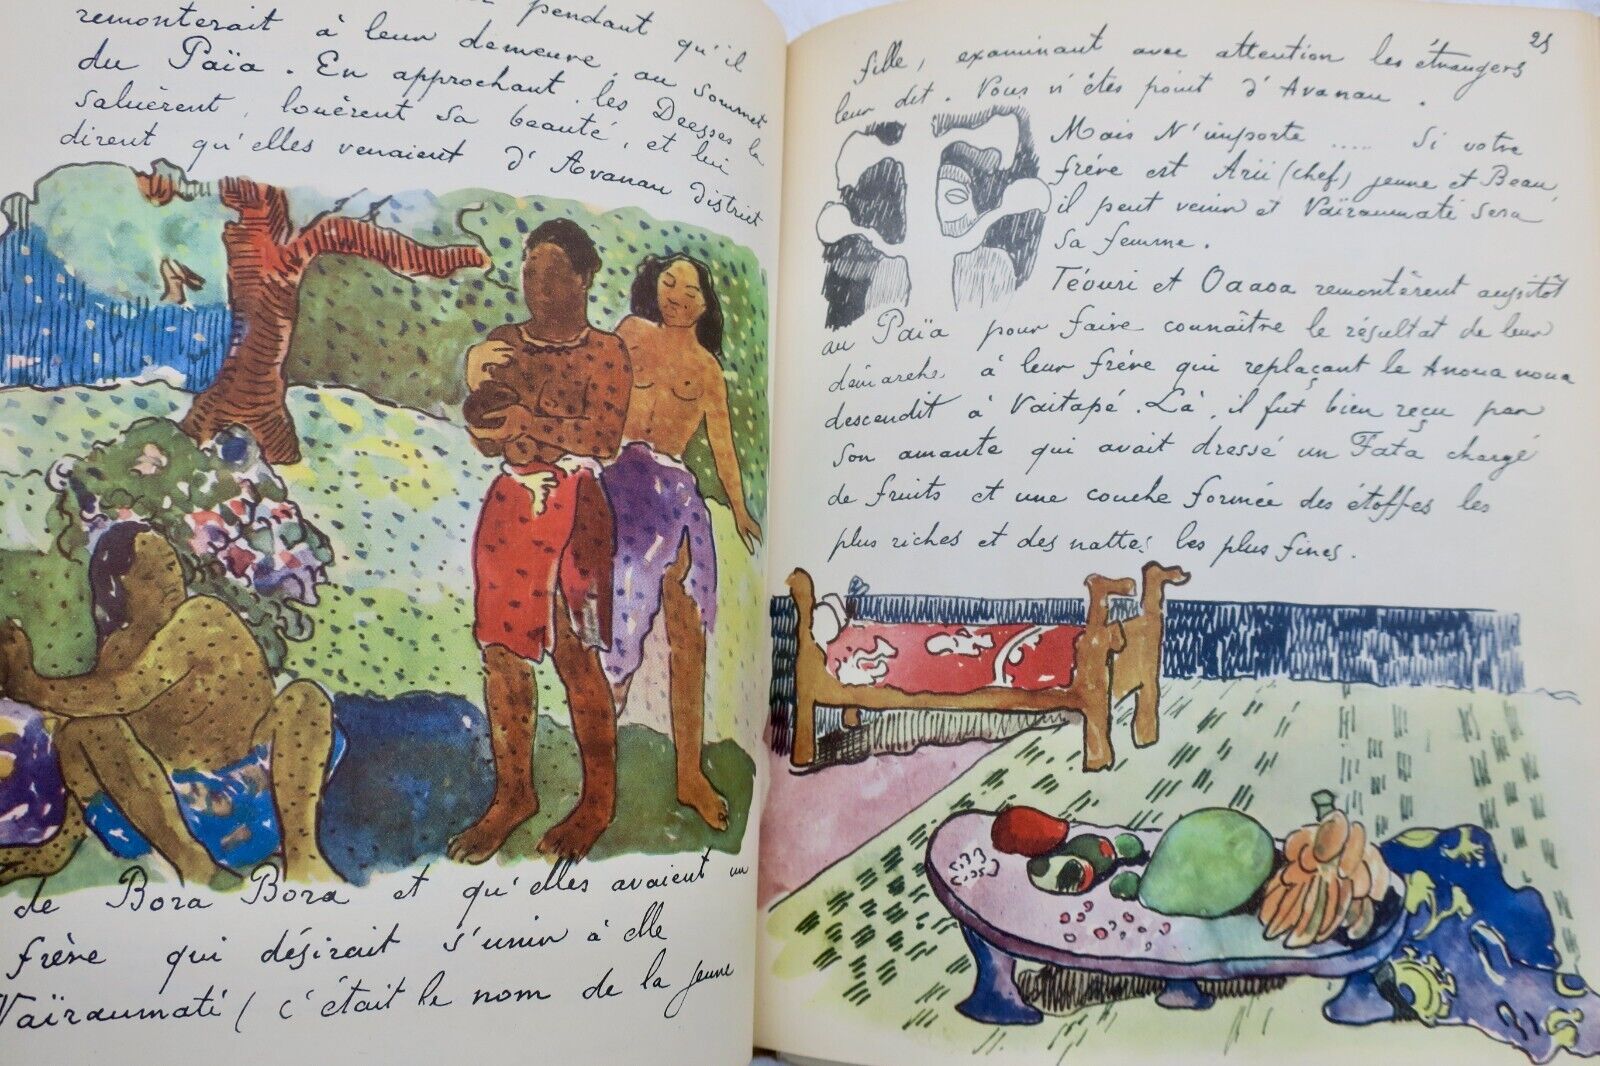 pendant qu'il
remonterait à leur demeure, au sommet
du Païa. En approchant, les Deesses la
saluèrent, louèrent sa beauté, et lui
dirent qu'elles venaient d'Avanau district
de Bora Bora et qu'elles avaient un
frère qui désirait s'unir à elle
Vaïraumati (C'était le nom de la jeune
25
fille, examinant avec attention les étrangers
leur dit. Vous n'êtes point d'Avanau.
Mais N'importe ..... Si votre
frère est Arii (chef) jeune et Beau
il peut venir et Vaïraumati sera
sa femme.
Téouri et Oaaoa remontèrent aussitôt
au Païa pour faire connaître le résultat de leur
démarche à leur frère qui replaçant le Anoua noua
descendit à Vaitapé. Là, il fut bien reçu par
son amante qui avait dressé un Fata chargé
de fruits et une couche formée des étoffes les
plus riches et des nattes les plus fines.